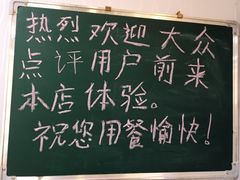 热烈欢迎大众
点评用户前来
本店体验。
祝您用餐愉快！